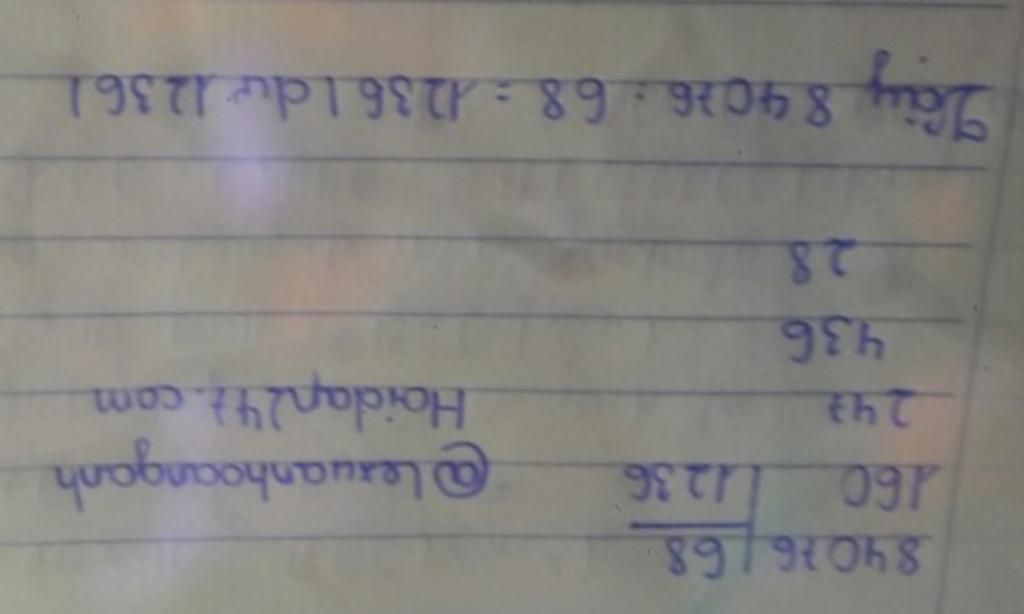 84076 | 68
160 | 1236 @lexuanhoanganh
247 Hoidap247.com
436
28
Vậy 84076 : 68 = 1236 (dư 1236)